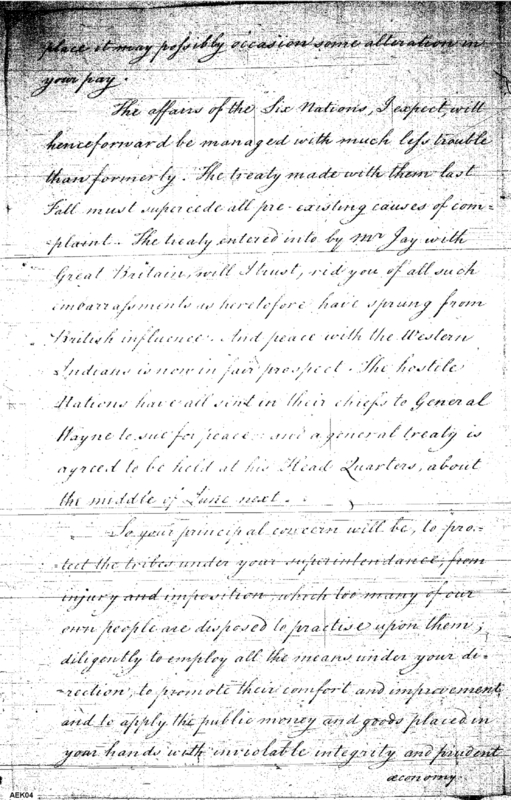 place it may possibly occasion some alteration in
your pay.
The affairs of the Six Nations, I expect, will
henceforward be managed with much less trouble
than formerly. The treaty made with them last
Fall must supercede all pre-existing causes of com-
plaint. The treaty entered into by Mr Jay with
Great Britain, will I trust, rid you of all such
embarrassments as heretofore have sprung from
British influence. And peace with the Western
Indians is now in fair prospect. The hostile
Nations have all sent in their chiefs to General
Wayne to sue for peace: and a general treaty is
agreed to be held at his Head Quarters, about
the middle of June next.
So your principal concern will be, to pro-
tect the tribes under your superintendance, from
injury and imposition, which too many of our
own people are disposed to practise upon them;
diligently to employ all the means under your di-
rection, to promote their comfort and improvement,
and to apply the public money and goods placed in
your hands with inviolable integrity and prudent
œconomy.
AEK04